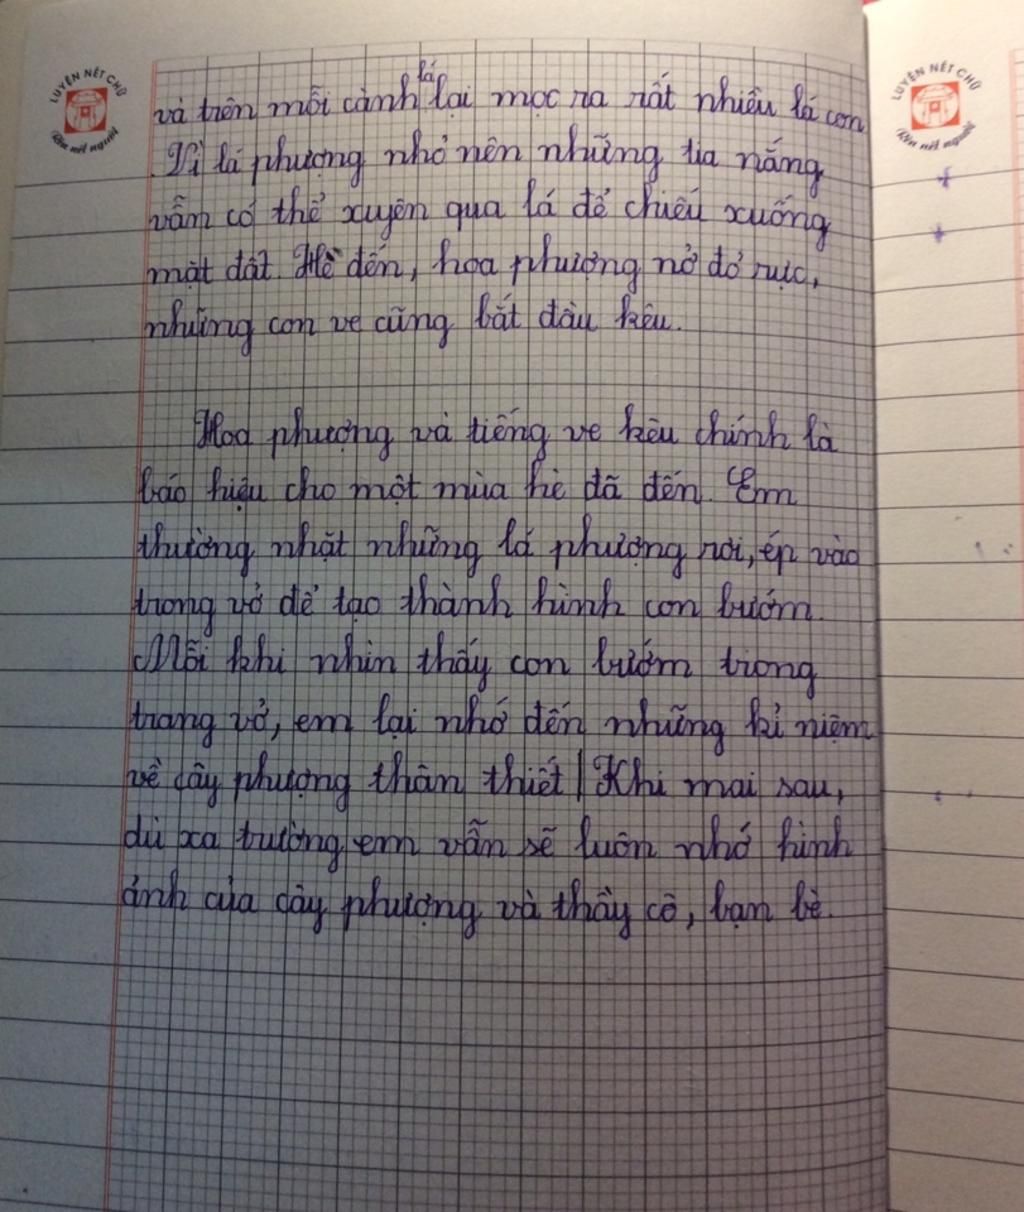 LUYỆN NÉT CHỮ
Rèn nết người
LUYỆN NÉT CHỮ
Rèn nết người
lá
và trên mỗi cành lại mọc ra rất nhiều lá con
. Vì lá phượng nhỏ nên những tia nắng
vẫn có thể xuyên qua lá để chiếu xuống
mặt đất. Hè đến, hoa phượng nở đỏ rực,
những con ve cũng bắt đầu kêu.
Hoa phượng và tiếng ve kêu chính là
báo hiệu cho một mùa hè đã đến. Em
thường nhặt những lá phượng rơi, ép vào
trong vở để tạo thành hình con bướm.
Mỗi khi nhìn thấy con bướm trong
trang vở, em lại nhớ đến những kỉ niệm
về cây phượng thân thiết | Khi mai sau,
dù xa trường em vẫn sẽ luôn nhớ hình
ảnh của cây phượng và thầy cô, bạn bè.